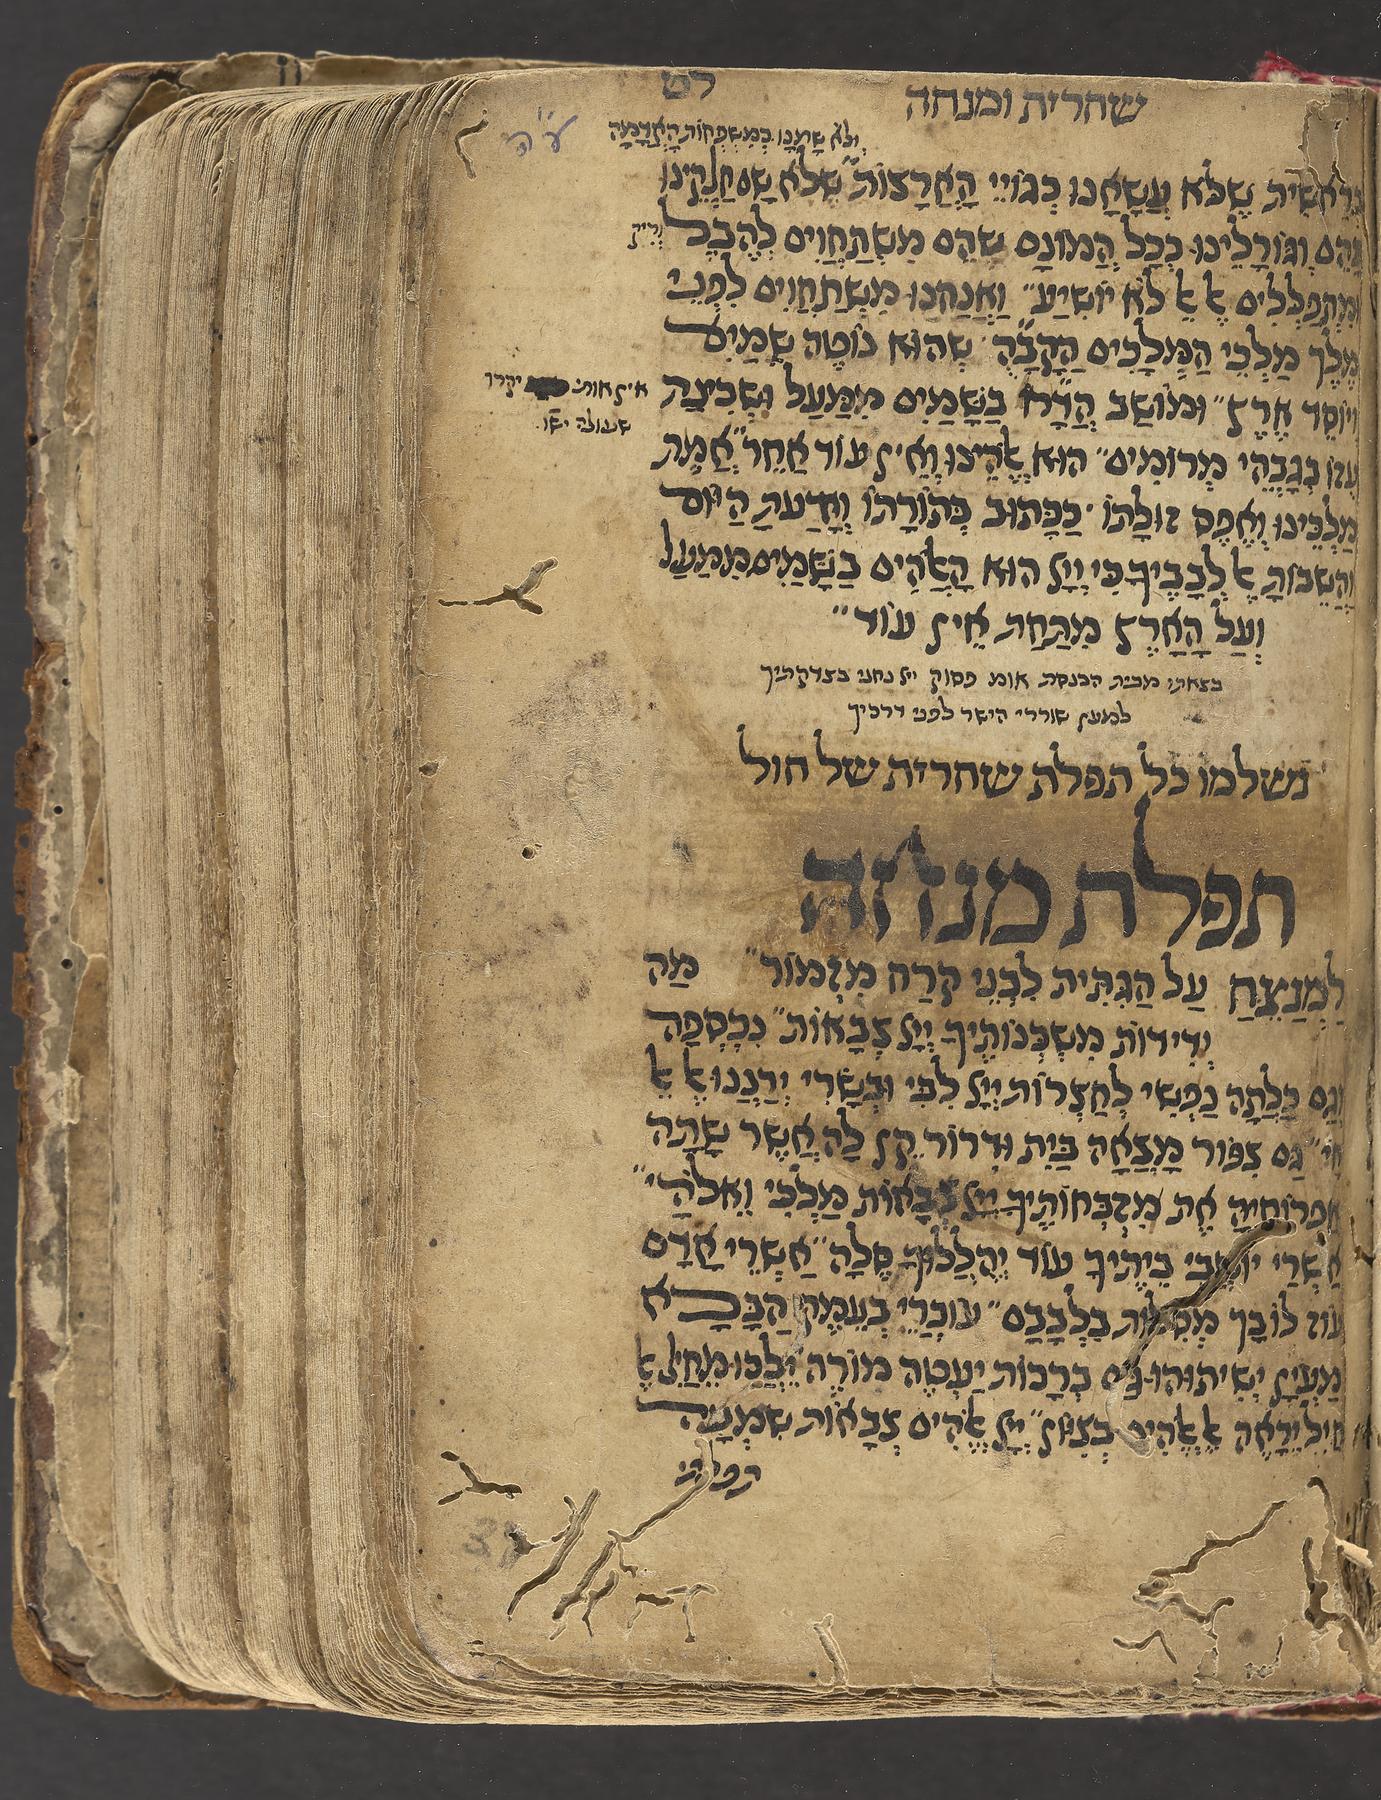 שחרית ומנחה
ולא שמנו כמשפחות האדמה
בראשית שלא עשאנו כגויי הארצות שלא שם חלקינו
כהם וגורלינו ככל המונם שהם משתחוים להבל
וריק
ומתפללים אל אל לא יושיע ואנחנו משתחוים לפני
מלך מלכי המלכים הקבה שהוא נוטה שמים
ויוסד ארץ ומושב הדרו בשמים ממעל ושכינת
עוזו בגבהי מרומים הוא אלהינו ואין עוד אחר אמת
מלכינו ואפס זולתו ככתוב בתורתו וידעת היום
והשבות אל לבביך כי ייי הוא האלהים בשמים ממעל
ועל הארץ מתחת אין עוד
בצאתו מבית הכנסת אומ פסוק ייי נחני בצדקתיך
למען שוררי הישר לפני דרכיך
נשלמו כל תפלת שחרית של חול
תפלת מנחה
למנצח על הגתית לבני קרח מזמור מה
ידידות משכנותיך ייי צבאות נכספה
וגם כלתה נפשי לחצרות ייי לבי ובשרי ירננו אל אל
חי גם צפור מצאה בית ודרור קן לה אשר שתה
אפרוחיה את מזבחותיך ייי צבאות מלכי ואלהי
אשרי יושבי ביתיך עוד יהללוך סלה אשרי אדם
עוז לו בך מסלות בלבבם עוברי בעמק הבכא
מעין ישיתוהו גם ברכות יעטה מורה ילכו מחיל אל
חיל יראה אל אלהים בציון ייי אלהים צבאות שמעה
תפלתי